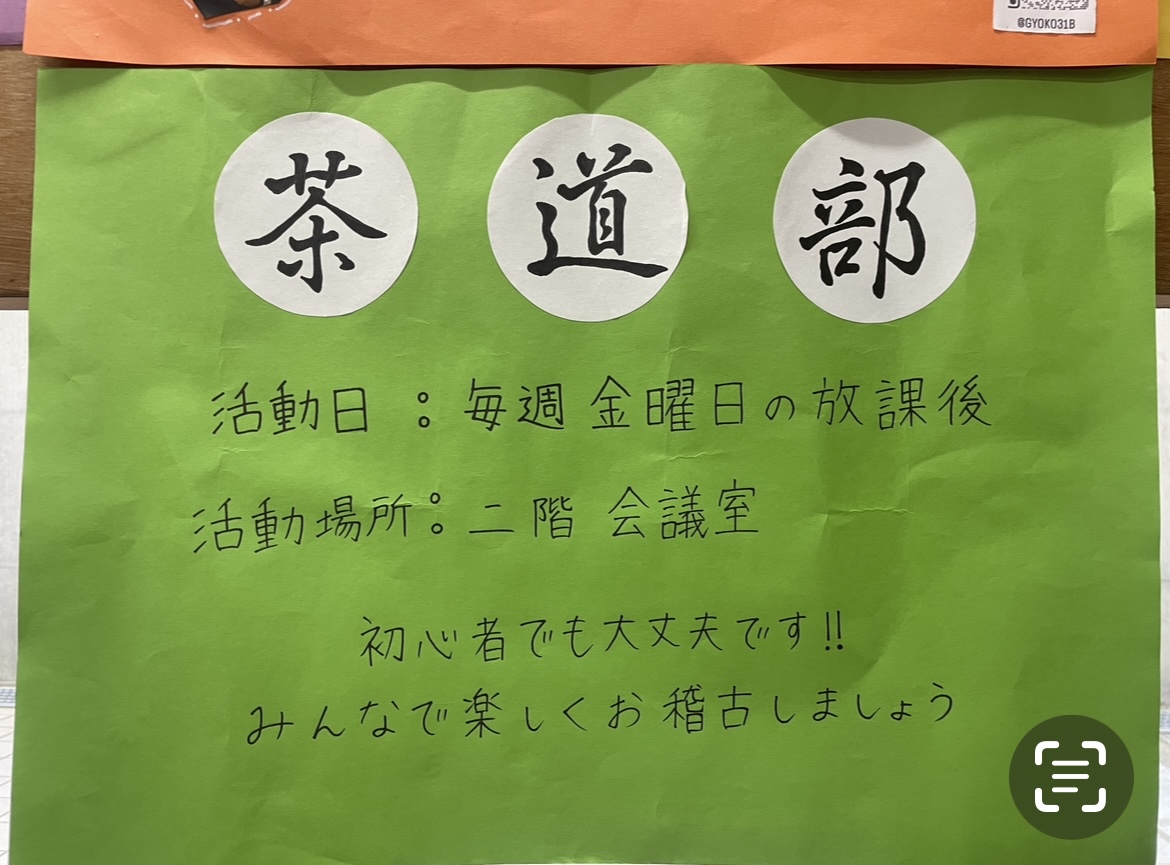 @GYOKO31B
茶道部
活動日：毎週 金曜日の放課後
活動場所：二階 会議室
初心者でも大丈夫です!!
みんなで楽しくお稽古しましょう